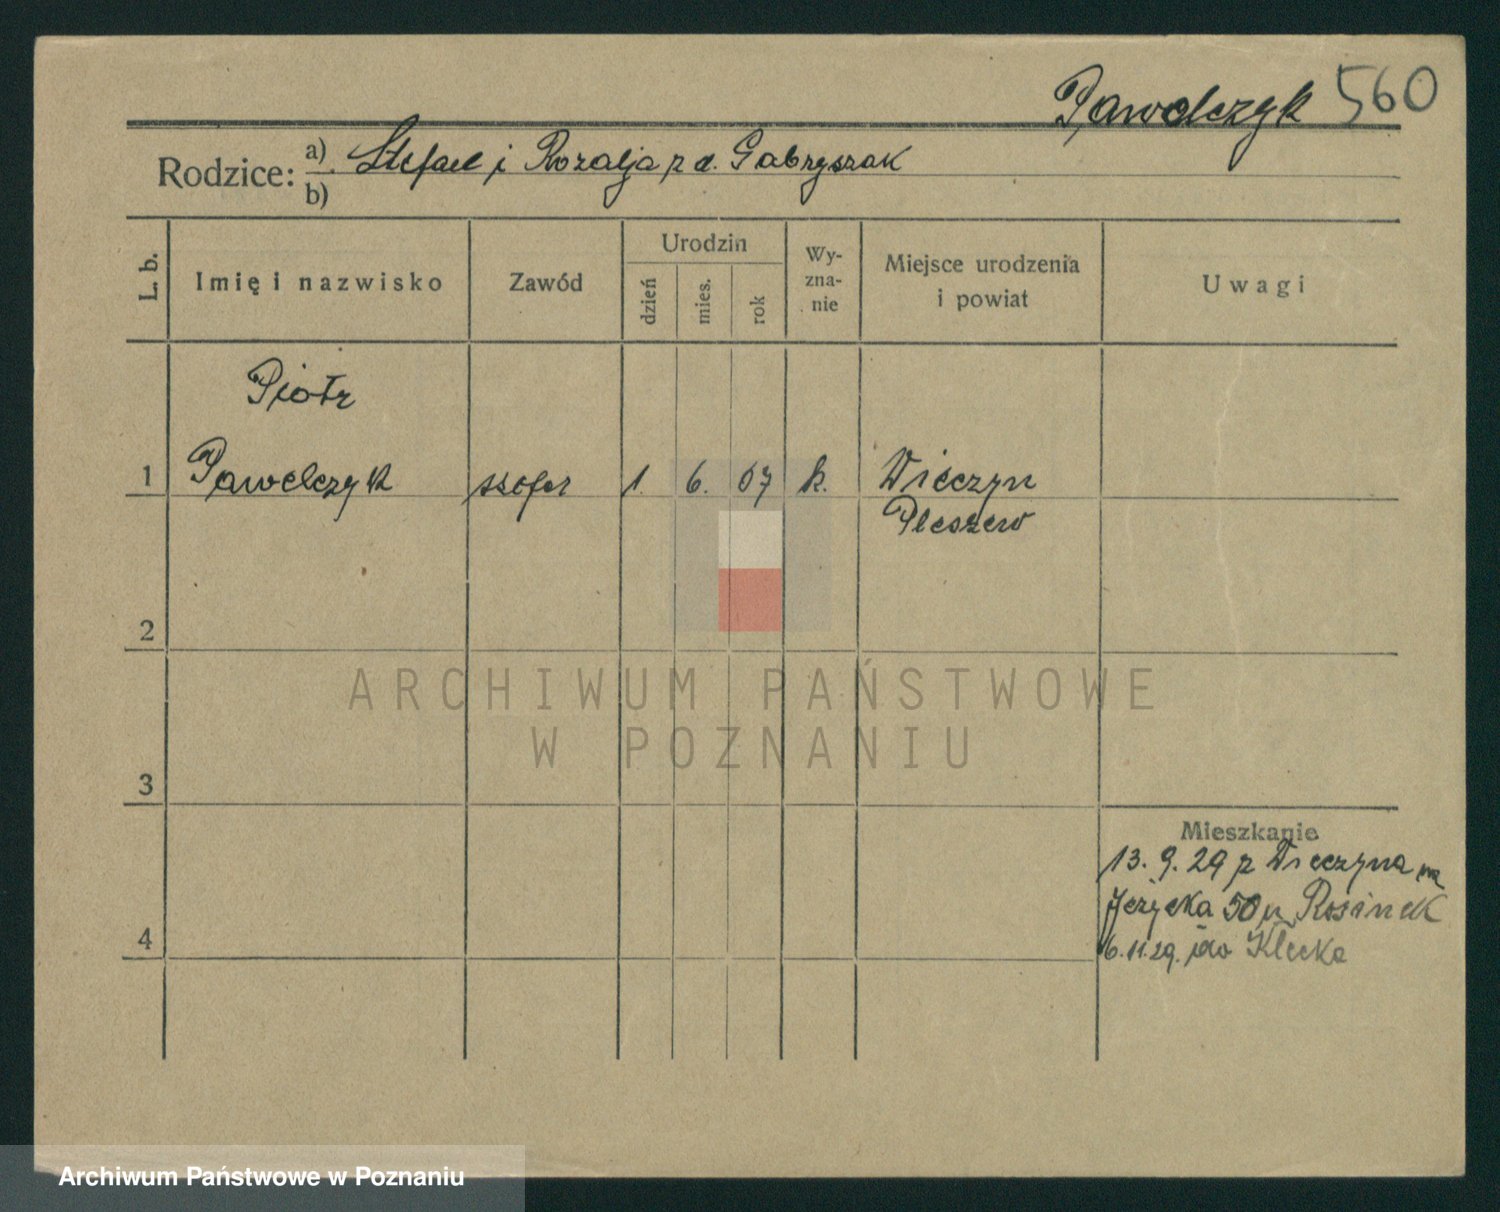 Pawelczyk 560
Rodzice: a) Stefan i Rozalja z d. Gabryszak
b)
L. b. Imię i nazwisko Zawód Urodzin dzień mies. rok Wy-zna-nie Miejsce urodzenia i powiat Uwagi
Piotr
1 Pawelczyk szofer 1. 6. 07 k. Wieczyn
Pleszew
2
ARCHIWUM PAŃSTWOWE
W POZNANIU
3
Mieszkanie
13. 9. 29 z Wieczyna na
Jeżycka 50 u
4
6. 11. 29. do Klecka
Archiwum Państwowe w Poznaniu